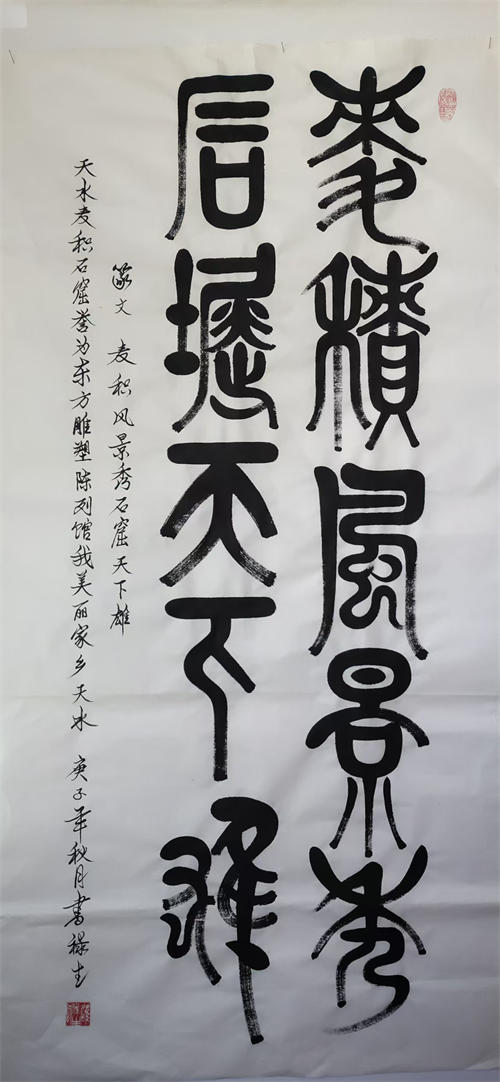 麥積風景秀
石堀天下雄
篆文 麦积风景秀石窟天下雄
天水麦积石窟誉为东方雕塑陈列馆我美丽家乡天水 庚子年秋月書禄生